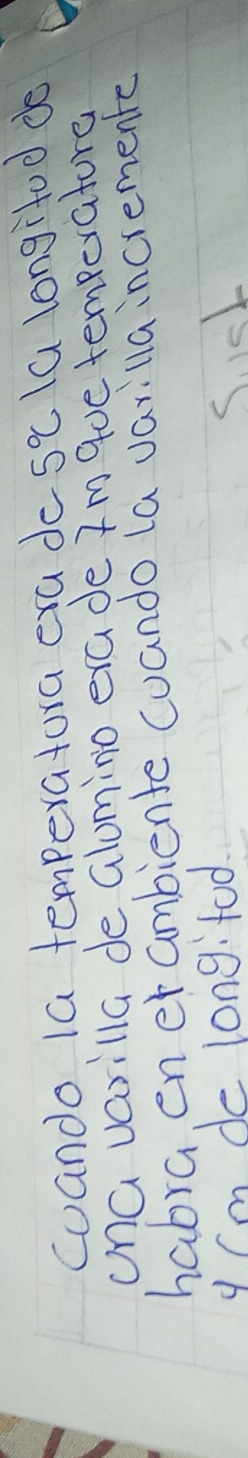 Cuando la temperatura era de 5°c la longitud de
una varilla de alumino era de 7m que temperatura
habra en el ambiente cuando la varilla incremente
4 cm de longitud.
Sust